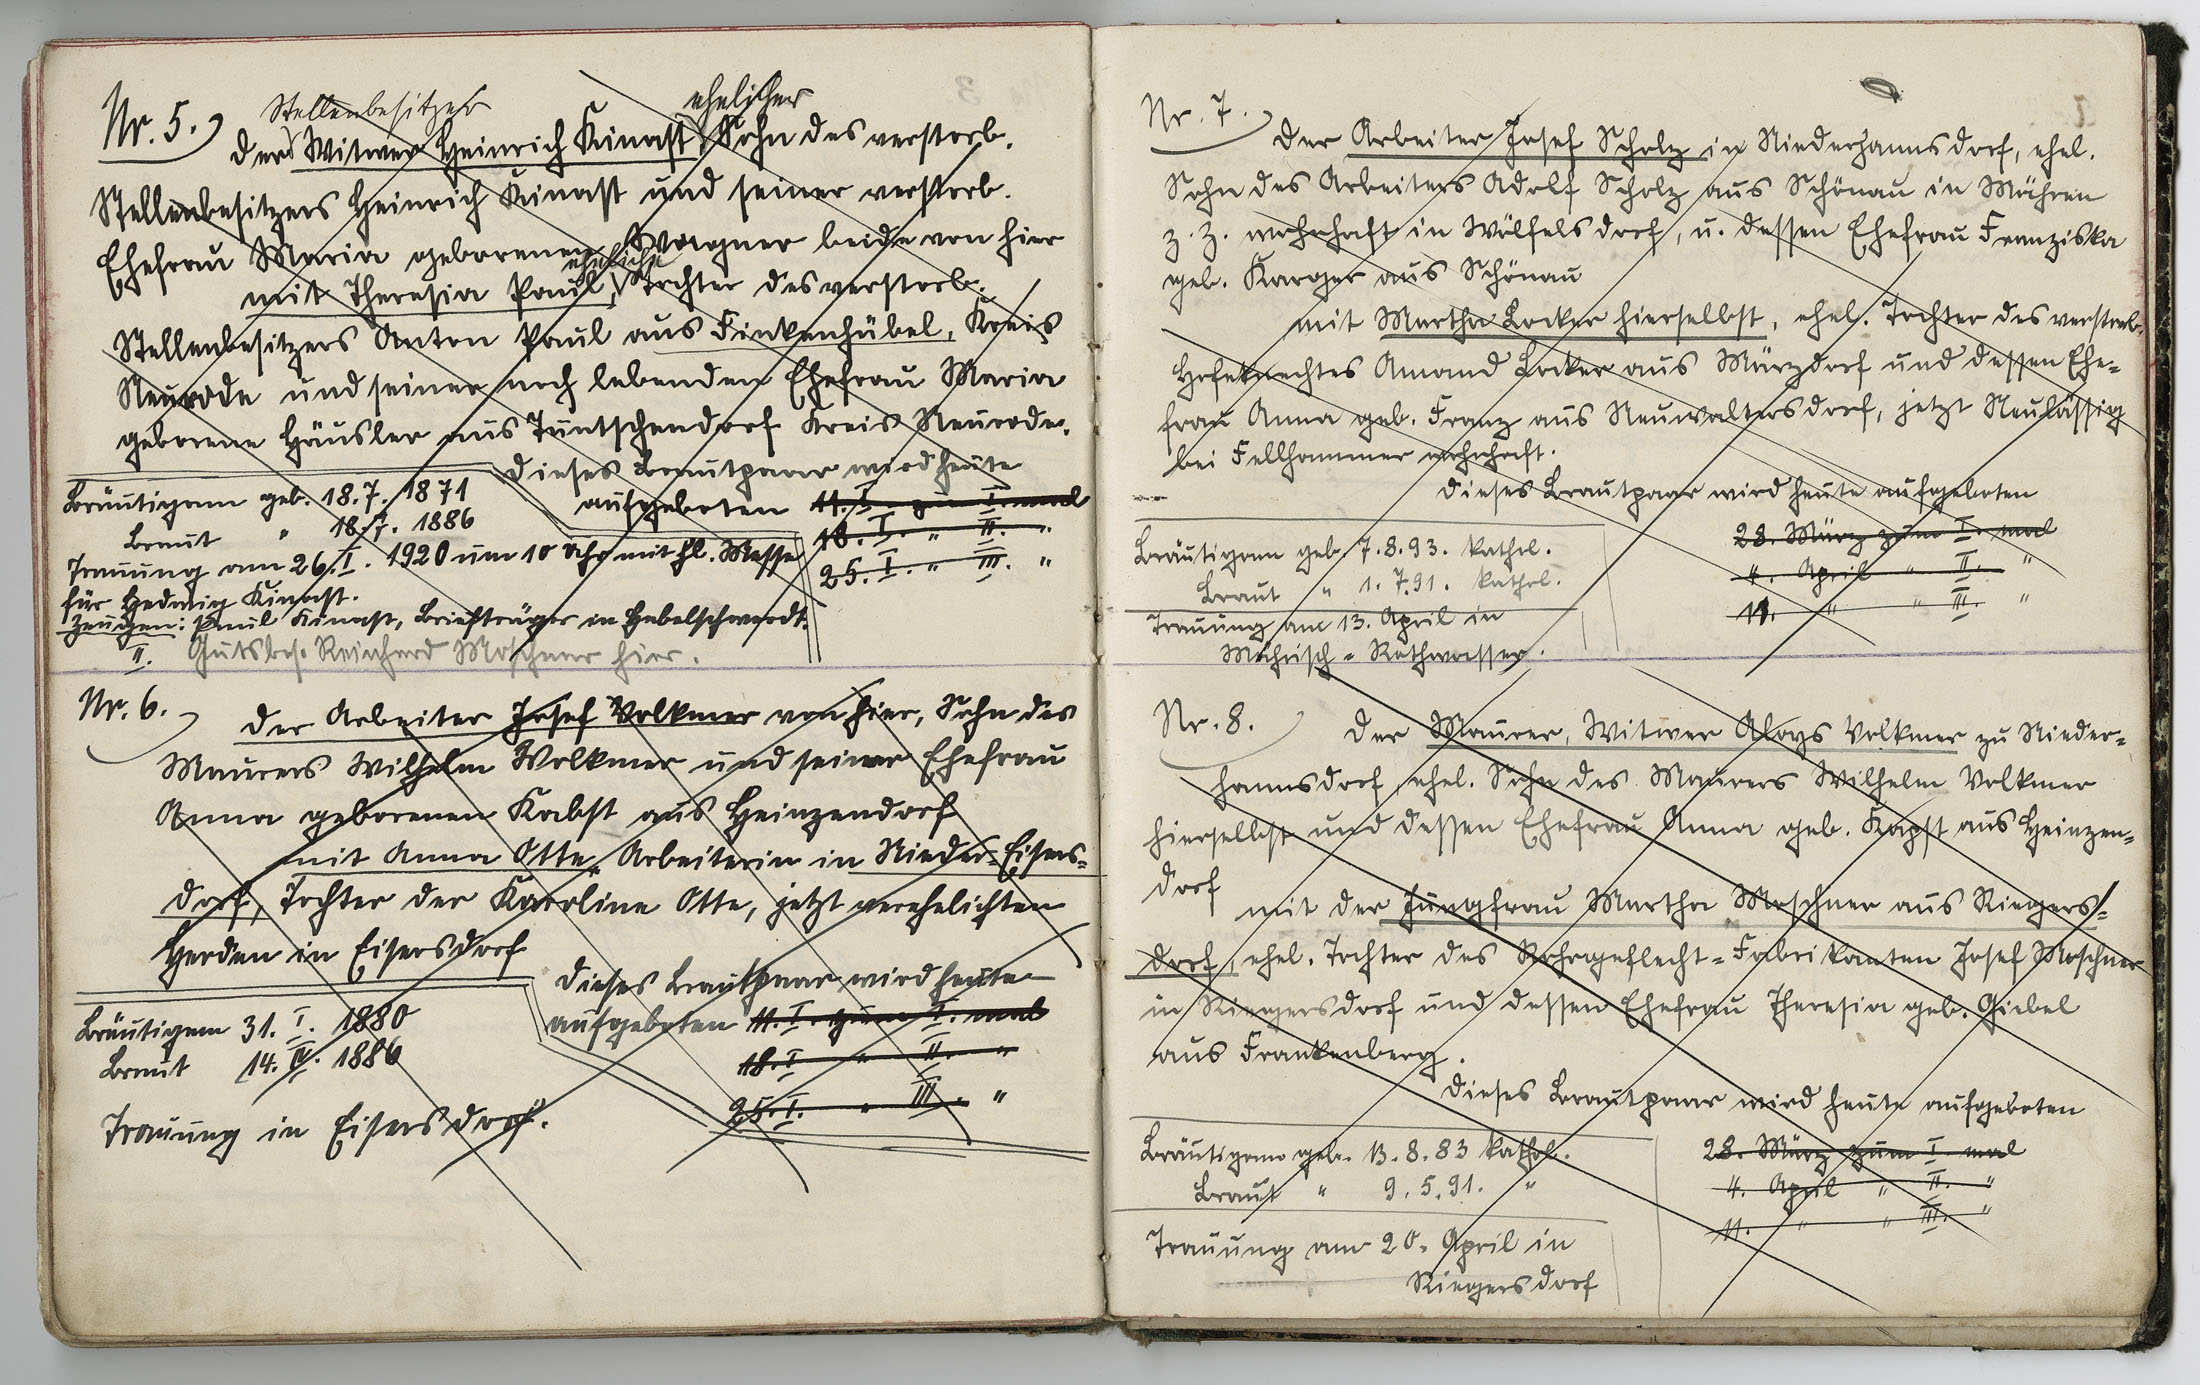 Nr. 5.)
Stellenbesitzer
ehelicher
der Witwer Heinrich Kinast, Sohn des verstorb.
Stellenbesitzers Heinrich Kinast und seiner verstorb.
Ehefrau Maria geborenen Wagner beide von hier
eheliche
mit Theresia Paul, Tochter des verstorb.
Stellenbesitzers Anton Paul aus Finkenhübel, Kreis
Neurode und seiner noch lebenden Ehefrau Maria
geborene Häusler aus Tuntschendorf Kreis Neurode.
Dieses Brautpaar wird heute
aufgeboten 11. I. zum I. mal
18. I. " II. "
25. I. " III. "
Bräutigam geb. 18.7.1871
Braut " 18.7.1886
Trauung am 26. I. 1920 um 10 Uhr mit hl. Messe
für Hedwig Kinast.
Zeugen: Paul Kinast, Briefträger in Habelschwerdt.
II. Gutsbes. Reinhard Moschner hier.
Nr. 6.)
Der Arbeiter Josef Volkmer von hier, Sohn des
Maurers Wilhelm Volkmer und seiner Ehefrau
Anna geborenen Kabst aus Heinzendorf
mit Anna Otte, Arbeiterin in Nieder-Eisers-
dorf, Tochter der Karoline Otte, jetzt verehelichten
Herden in Eisersdorf
Dieses Brautpaar wird heute
aufgeboten 11. I. zum I. mal
18. I " II. "
25. I. " III. "
Bräutigam 31. I. 1880
Braut 14. IV. 1886
Trauung in Eisersdorf.
Nr. 7.)
Der Arbeiter Josef Scholz in Niederhannsdorf, ehel.
Sohn des Arbeiters Adolf Scholz aus Schönau in Mähren
z. Z. wohnhaft in Wölfelsdorf, u. dessen Ehefrau Franziska
geb. Karger aus Schönau
mit Martha Locker hierselbst, ehel. Tochter des verstorb.
Hofeknechtes Amand Locker aus Märzdorf und dessen Ehe-
frau Anna geb. Franz aus Neuwaltersdorf, jetzt Neulässig
bei Fellhammer wohnhaft.
Dieses Brautpaar wird heute aufgeboten
28. März zum I. mal
4. April " II. "
11. " " III. "
Bräutigam geb. 7.8.93. kathol.
Braut " 1.7.91. kathol.
Trauung am 13. April in
Mährisch-Rothwasser.
Nr. 8.)
Der Maurer, Witwer Aloys Volkmer zu Nieder-
hannsdorf, ehel. Sohn des Maurers Wilhelm Volkmer
hierselbst und dessen Ehefrau Anna geb. Kapst aus Heinzen-
dorf
mit der Jungfrau Martha Moschner aus Riegers-
dorf, ehel. Tochter des Rohrgeflecht-Fabrikanten Josef Moschner
in Riegersdorf und dessen Ehefrau Theresia geb. Giebel
aus Frankenberg.
Dieses Brautpaar wird heute aufgeboten
28. März zum I. mal
4. April " II. "
11. " " III. "
Bräutigam geb. 13.8.83 kathol.
Braut " 9.5.91. "
Trauung am 20. April in
Riegersdorf